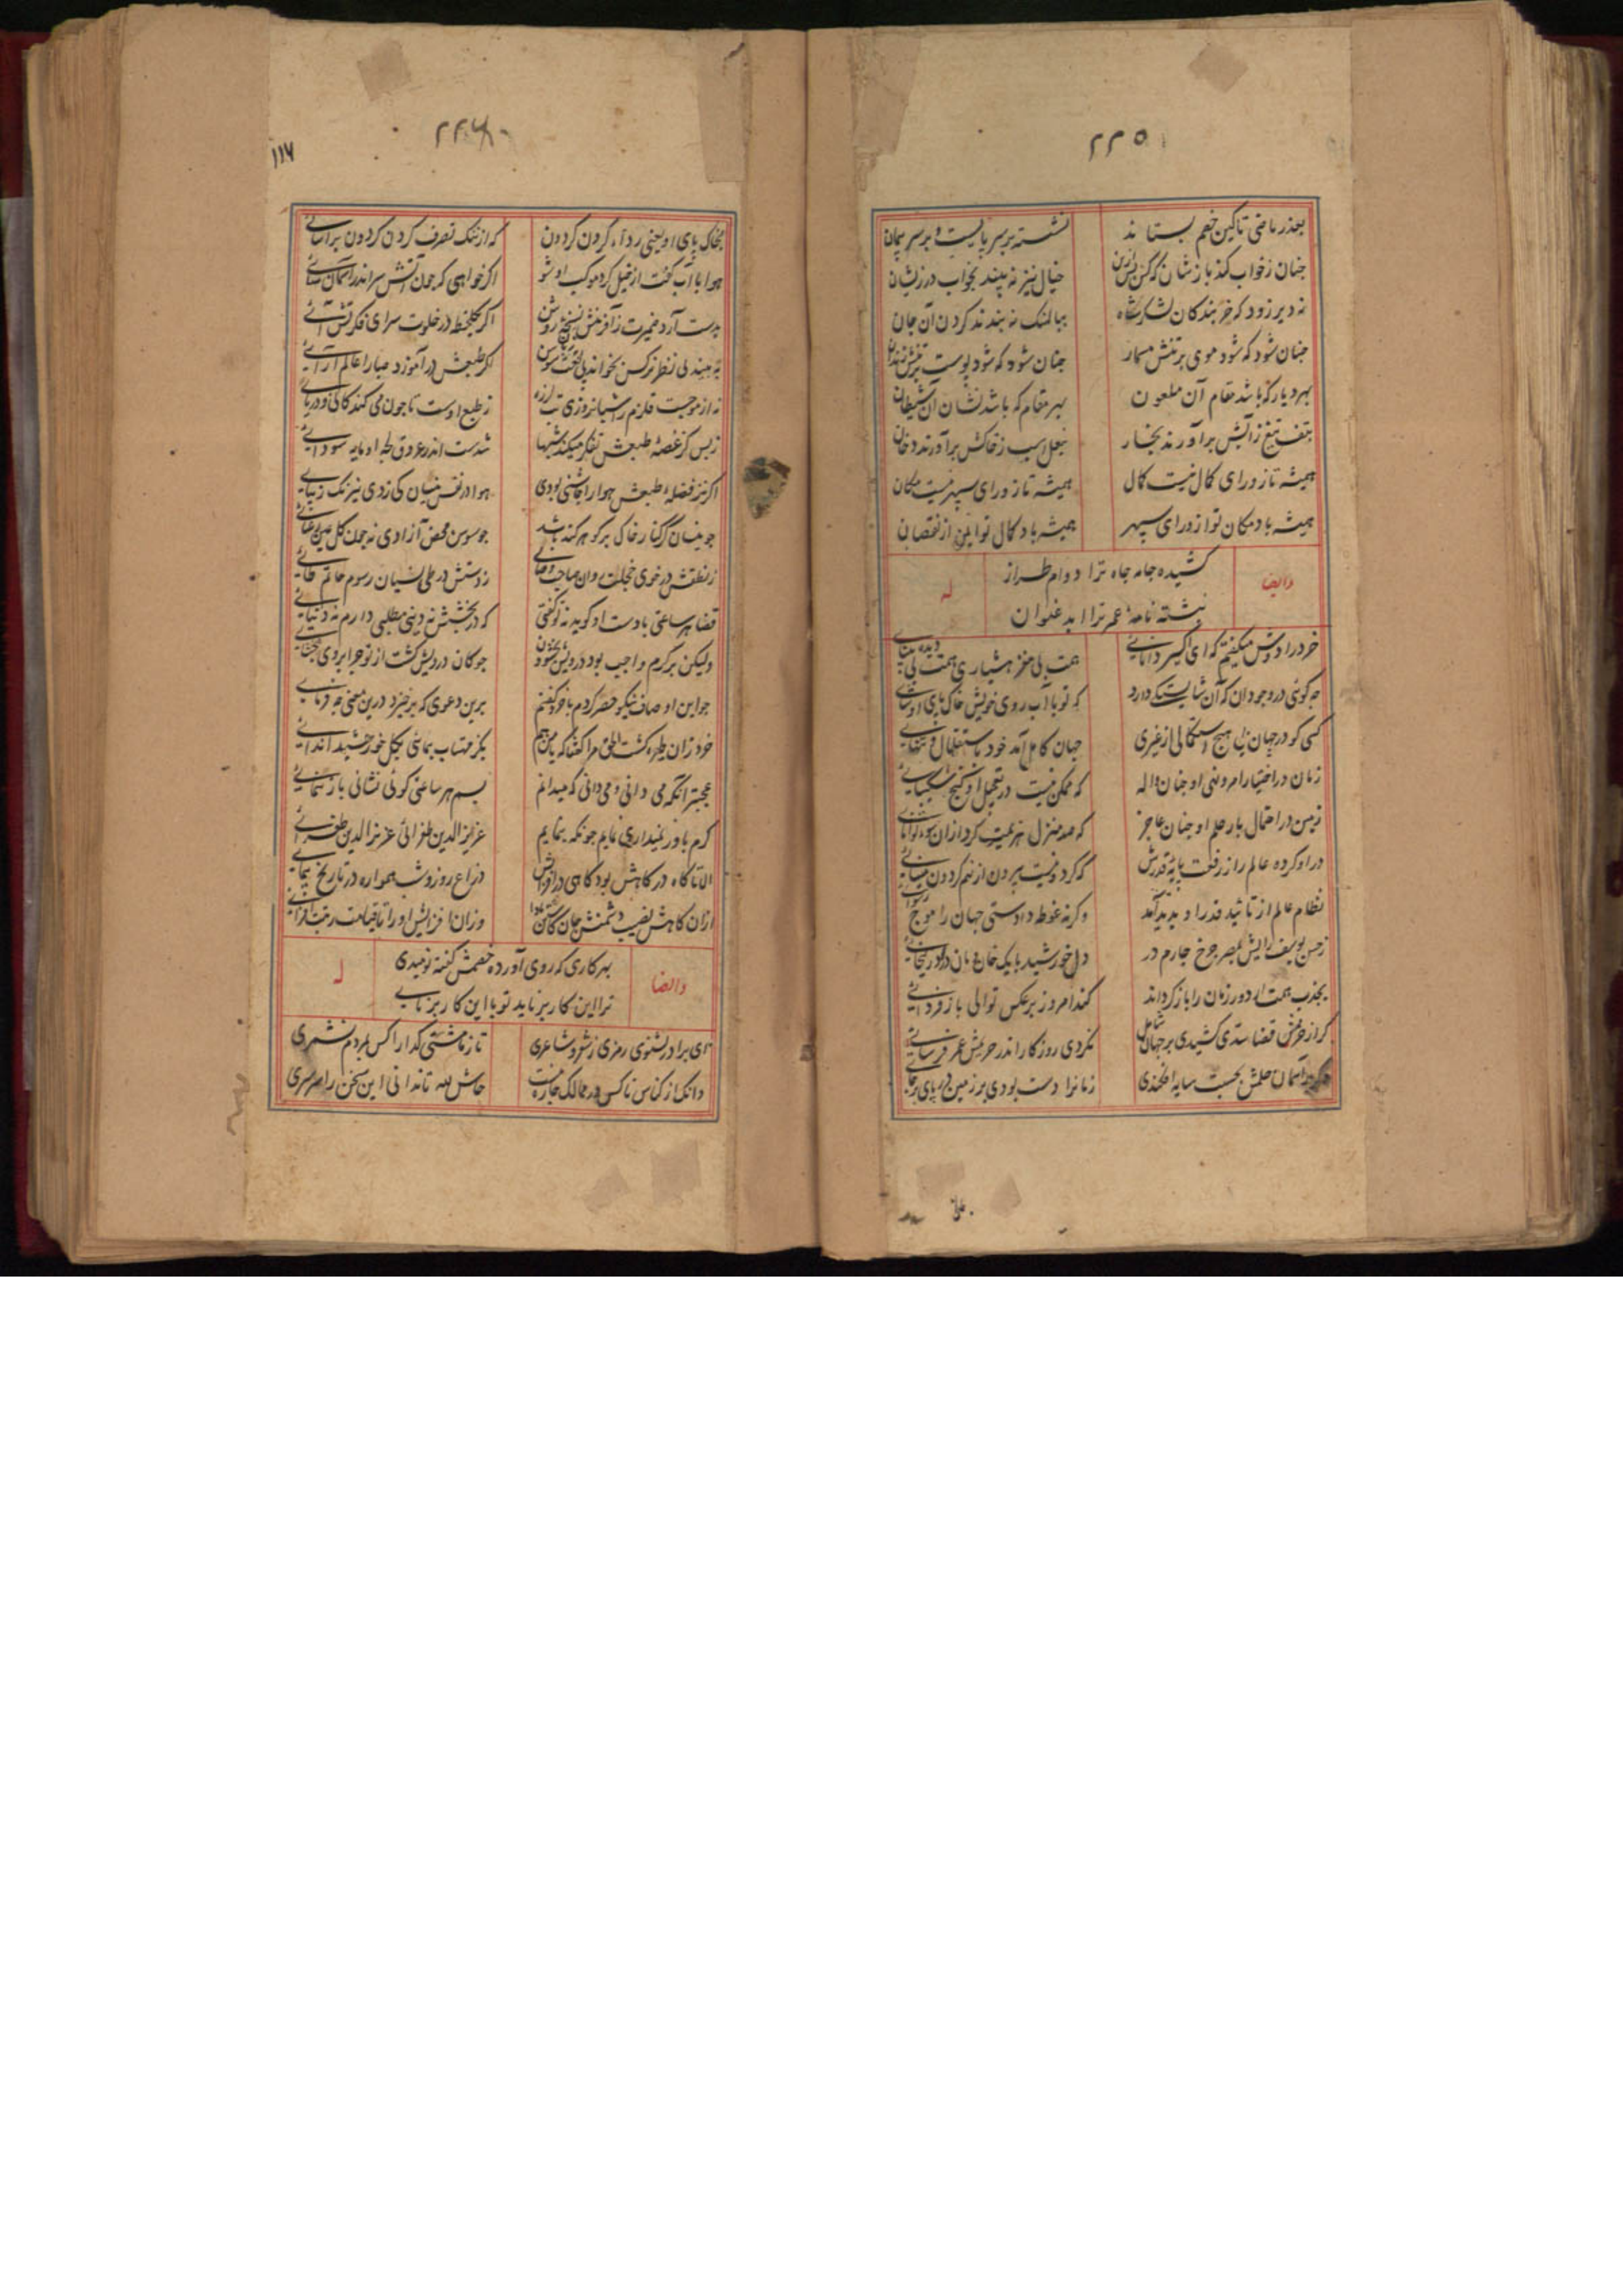 ۲۲۵
بعذر ماضی تا کین خصم بستاند
نشسته بر سر پایست و بر سر پیمان
جنان ز خواب کند بازشان که
خیال نیز نه بیند بخواب در زیشان
نه دیر زود که خربندکان لشکر شاه
ببالهنک نه بندند کردن آن جان
جنان شود که شود موی بر تنش مسمار
جنان شود که شود پوست بر تنش زندان
بهر دیار که باشد مقام آن ملعون
بهر مقام که باشد نشان آن شیطان
بتف تیغ ز آبش برآورند بخار
بنعل اسب ز خاکش برآورند دخان
همیشه تا ز ورای کمال نیست کمال
همیشه تا ز ورای سپهر نیست مکان
همیشه باد مکان تو از ورای سپهر
همیشه باد کمال تو ایمن از نقصان
وایضا
کشیده جامه جاه ترا دوام طراز
نبشته نامهٔ عمر ترا ابد عنوان
له
خرد را دوش میکفتم که ای اکسیر دانائی
همت بی مغز هشیاری همت بی دیده بینائی
جه کوئی در وجود آن کیست کان شایستکی دارد
که تو با آب روی خویش خاک پای او شائی
کسی کو در جهان بی هیچ استکمالی از غیری
جهان کامل آمد خود باستقلال و تنهائی
زمان در اختیار امر و نهی او جنان واله
که ممکن نیست در تعجیل او کنج شکیبائی
زمین در احتمال بار حلم او جنان عاجز
که صد منزل هزیمت کرد ازان سوء توانائی
در او کرده عالم را ز رفعت پایهٔ قدرش
که کردونیست بیرون از نهم کردون مینائی
نظام عالم از تائید قدر او پدید آمد
وکرنه غوطه دادستی جهان را موج رسوائی
ز حسن یوسف رایش بمصر جرخ جارم در
دل خورشید با یک خانمان درد زلیخائی
بجذب همت ار دور زمان را باز کرداند
کند امروز بر عکس توالی باز فردائی
کر از حزمش قضا سدی کشیدی بر جهان شامل
نکردی روزکار اندر حریمش عمر فرسائی
وکر بر آسمان حلمش بحسبت سایه افکندی
زمانرا دست بودی بر زمین در پای برجائی
۲۲۶
۱۱۷
بخاک پای او یعنی رداء کردن کردون
که از ننک تصرف کردن کردون برآسائی
هوا با آب کفت از خیل کرد موکب او شو
اکر خواهی که جون آتش سر اندر آسمان سائی
بدست آرد ضمیرت ز آفرینش نسخهٔ روشن
اکر یک لحظه در خلوت سرای فکرتش آئی
نه بیند بی نظر نرکس نخواند بی لغت سوسن
اکر طبعش در آموزد صبا را عالم آرائی
نه از موجست قلزم را شبانروزی تب لرزه
ز طبع اوست تا جون می کند کانی و دریائی
ز بس کز غصهٔ طبعش تفکر میکند شبها
شدست اندر عروق لجهٔ او مایه سودائی
اکر نز فضلهٔ طبعش هوا را جاشنی بودی
هوا در نفس نیسان کی زدی نیرنک زیبائی
جو نیسان کر کنار خاک پر کوهر کند شاید
جو سوسن محض آزادی نه جون کل عین رعنائی
ز نطقش در خوی خجلت روان صاحب و صابی
ز دستش در طی نسیان رسوم حاتم طائی
قضا هر ساعتی با دست او کوید نه تو کفتی
که در بخشش نه دینی مطلبی دارم نه دنیائی
ولیکن بر کرم واجب بود درویش بخشودن
جو کان درویش کشت از تو جرا بر وی نبخشائی
جو این اوصاف نیکو حصر کردم با خرد کفتم
برین دعوی که برخیزد درین معنی جه فرمائی
خرد زان طیره کشت الحق مرا کفتا که با من هم
بکز مهتاب پیمائی بکل خورشید اندائی
عجبتر آنکه می دانی و می دانی که میدانم
بس هر ساعتی کوئی نشانی باز ننمائی
کرم باور نمیداری نمایم جونکه بنمایم
عزیز الدین طغرائی عزیز الدین طغرائی
الا تا کاه در کاهش بود کاهی در افزایش
ذراع روز و شب همواره در تاریخ پیمائی
ازان کاهش نصیب دشمنش جان کاستن بادا
وزان افزایش او را تا قیامت رتبت افزائی
وایضا
بهر کاری که روی آورده خصمش کفته نومیدی
ترا این کار بر ناید تو با این کار بر نایی
له
ای برادر بشنوی رمزی ز شعر و شاعری
تا ز ما مشتی کدا را کس بمردم نشمری
دانک از کناس ناکس در ممالک جاره نیست
حاش لله تا ندانی این سخن را سرسری